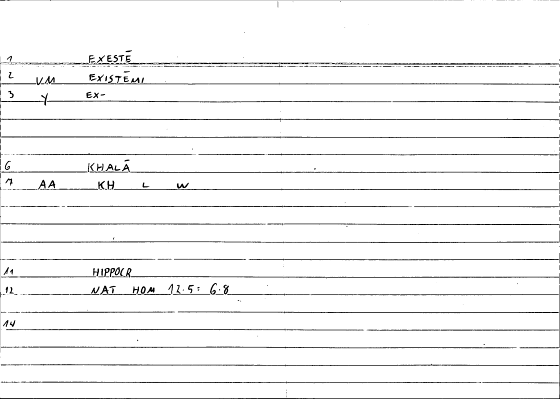 1 EXESTĒ
2 VM EXISTĒMI
3 Y EX-
6 KHALĀ
7 AA KH L W
11 HIPPOCR
12 NAT HOM 12.5: 6.8
14